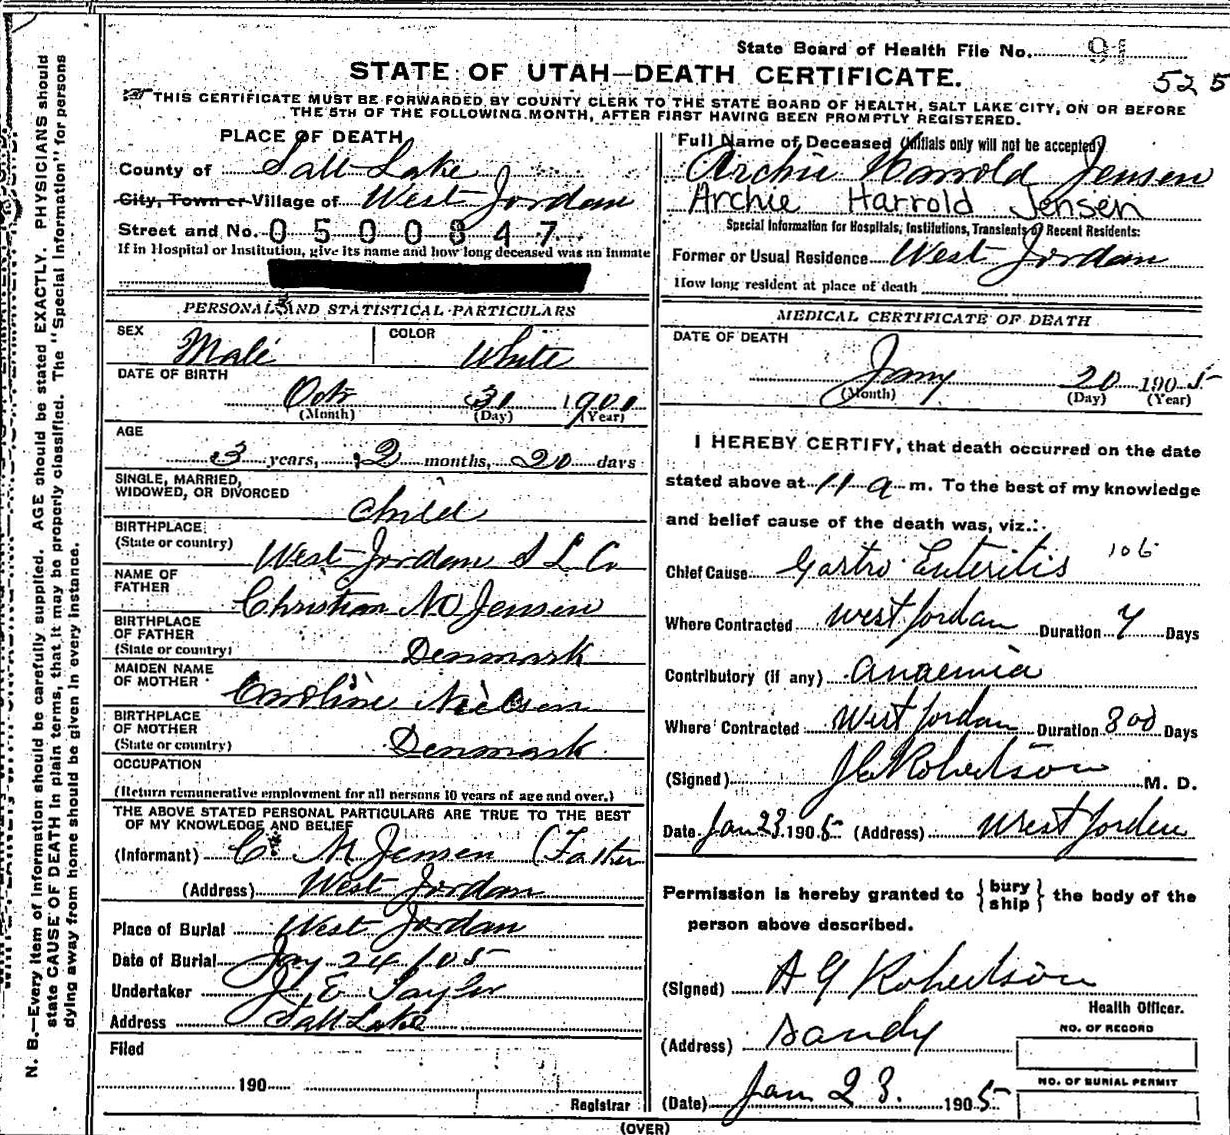 State Board of Health File No.
525
STATE OF UTAH—DEATH CERTIFICATE.
THIS CERTIFICATE MUST BE FORWARDED BY COUNTY CLERK TO THE STATE BOARD OF HEALTH, SALT LAKE CITY, ON OR BEFORE
THE 5TH OF THE FOLLOWING MONTH, AFTER FIRST HAVING BEEN PROMPTLY REGISTERED.
PLACE OF DEATH
County of Salt Lake
City, Town or Village of West Jordan
Street and No. 0500847
If in Hospital or Institution, give its name and how long deceased was an inmate
PERSONAL AND STATISTICAL PARTICULARS
SEX Male COLOR White
DATE OF BIRTH
Oct 31 1901
(Month) (Day) (Year)
AGE
3 years, 2 months, 20 days
SINGLE, MARRIED,
WIDOWED, OR DIVORCED
Child
BIRTHPLACE
(State or country) West Jordan S L Co
NAME OF
FATHER Christian M Jensen
BIRTHPLACE
OF FATHER
(State or country) Denmark
MAIDEN NAME
OF MOTHER Caroline Nielsen
BIRTHPLACE
OF MOTHER
(State or country) Denmark
OCCUPATION
(Return remunerative employment for all persons 10 years of age and over.)
THE ABOVE STATED PERSONAL PARTICULARS ARE TRUE TO THE BEST
OF MY KNOWLEDGE AND BELIEF
(Informant) C. M Jensen (Father
(Address) West Jordan
Place of Burial West Jordan
Date of Burial Jay 24 / 05
Undertaker J. E Taylor
Address Salt Lake
Filed
190
Registrar
Full Name of Deceased (Initials only will not be accepted)
Archie Harrold Jensen
Archie Harrold Jensen
Special Information for Hospitals, Institutions, Transients or Recent Residents:
Former or Usual Residence West Jordan
How long resident at place of death
MEDICAL CERTIFICATE OF DEATH
DATE OF DEATH
Jany 20 1905
(Month) (Day) (Year)
I HEREBY CERTIFY, that death occurred on the date
stated above at 11 a m. To the best of my knowledge
and belief cause of the death was, viz.:
Chief Cause Gastro Enteritis 106
Where Contracted West Jordan Duration 7 Days
Contributory (if any) anaemia
Where Contracted West Jordan Duration 300 Days
(Signed) Robertson M. D.
Date Jan 23 1905 (Address) West Jorden
Permission is hereby granted to {bury
ship} the body of the
person above described.
(Signed) A G Robertson
Health Officer.
(Address) Sandy
NO. OF RECORD
NO. OF BURIAL PERMIT
(Date) Jan 23. 1905
(OVER)
N. B.—Every item of information should be carefully supplied. AGE should be stated EXACTLY. PHYSICIANS should
state CAUSE OF DEATH in plain terms, that it may be properly classified. The "Special Information" for persons
dying away from home should be given in every instance.